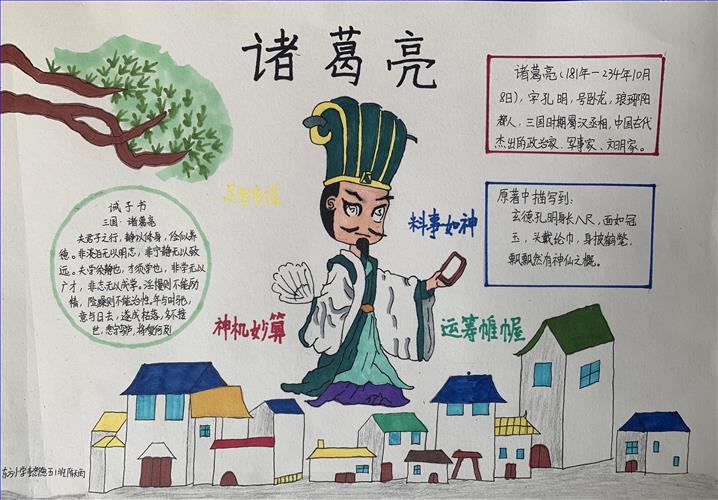 诸葛亮
诸葛亮(181年-234年10月
8日),字孔明,号卧龙,琅琊阳
都人,三国时期蜀汉丞相,中国古代
杰出的政治家、军事家、文学家。
足智多谋
料事如神
原著中描写到:
玄德孔明身长八尺,面如冠
玉,头戴纶巾,身披鹤氅,
飘飘然有神仙之概。
诫子书
三国·诸葛亮
夫君子之行,静以修身,俭以养
德。非淡泊无以明志,非宁静无以致
远。夫学须静也,才须学也,非学无以
广才,非志无以成学。淫慢则不能励
精,险躁则不能治性。年与时驰,
意与日去,遂成枯落,多不接
世,悲守穷庐,将复何及
神机妙算
运筹帷幄
东方小学 五1班